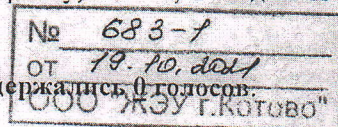 № 683-1
от 19.10.2021
держались 0 голосов.
ООО "ЖЭУ г.Котово"